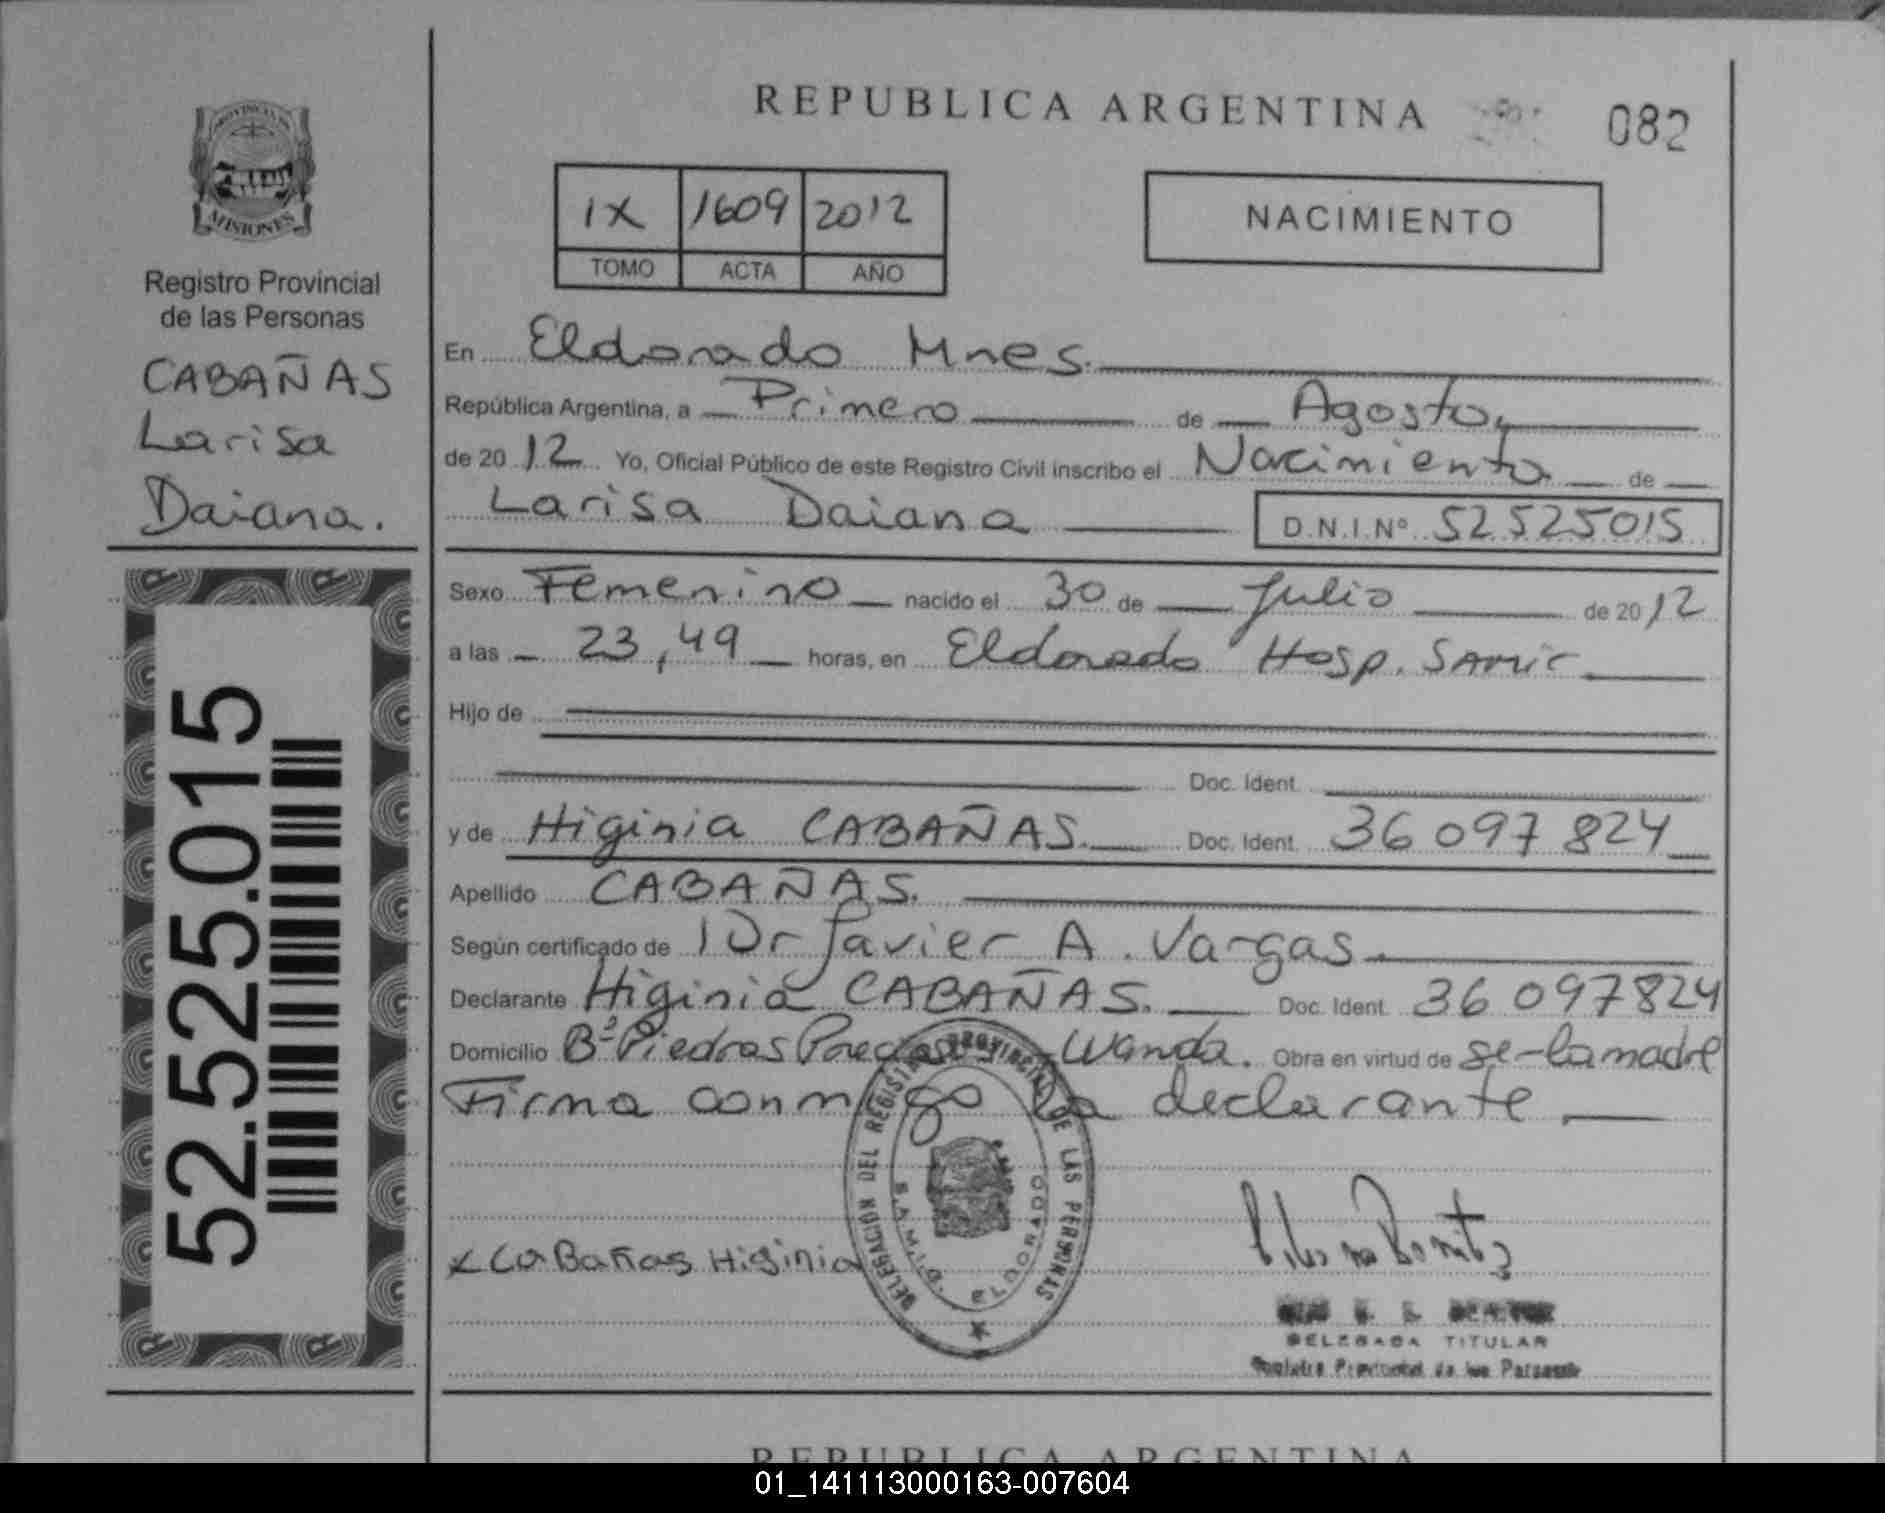 REPUBLICA ARGENTINA
082
PROVINCIA DE
MISIONES
Registro Provincial
de las Personas
CABAÑAS
Larisa
Daiana.
52.525.015
IX 1609 2012
TOMO ACTA AÑO
NACIMIENTO
En Eldorado Mnes.
República Argentina, a Primero de Agosto,
de 2012 Yo, Oficial Público de este Registro Civil inscribo el Nacimiento de
Larisa Daiana D.N.I.Nº 52525015
Sexo Femenino nacido el 30 de Julio de 2012
a las 23,49 horas, en Eldorado Hosp. SAMIC
Hijo de
Doc. Ident.
y de Higinia CABAÑAS. Doc. Ident. 36 097 824
Apellido CABAÑAS.
Según certificado de Dr Javier A. Vargas.
Declarante Higinia CABAÑAS. Doc. Ident. 36 097824
Domicilio Bº Piedras Preciosas Wanda. Obra en virtud de se-la madre
Firma conmigo la declarante
DELEGACION DEL REGISTRO PROVINCIAL DE LAS PERSONAS
S.A.M.I.C. ELDORADO
x CaBañas Higinia
DELEGADA TITULAR
Registro Provincial de las Personas
REPUBLICA ARGENTINA
01_141113000163-007604